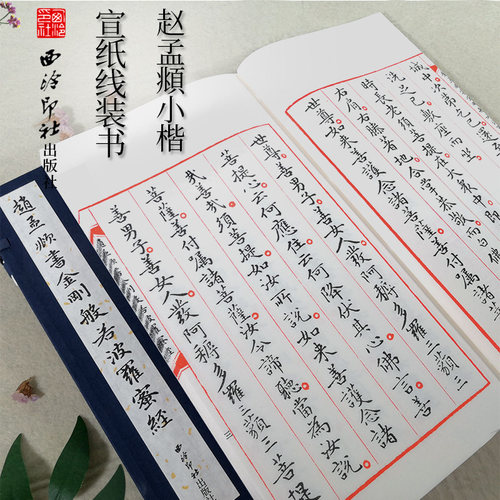 赵孟頫小楷
宣纸线装书
西泠印社出版社
城中次第乞
洗足已敷座而坐
時長老須菩提在大衆中
右肩右膝著地合掌恭敬而白
世尊如來善護念諸菩薩善付屬諸
世尊善男子善女人發阿耨多羅三藐三
菩提心云何應住云何降伏其心佛言善
哉善哉須菩提如汝所說如來善護念諸
菩薩善付囑諸菩薩汝今諦聽當為汝說
善男子善女人發阿耨多羅三藐三菩提
三
趙孟頫書金剛般若波羅蜜經
西泠印社出版